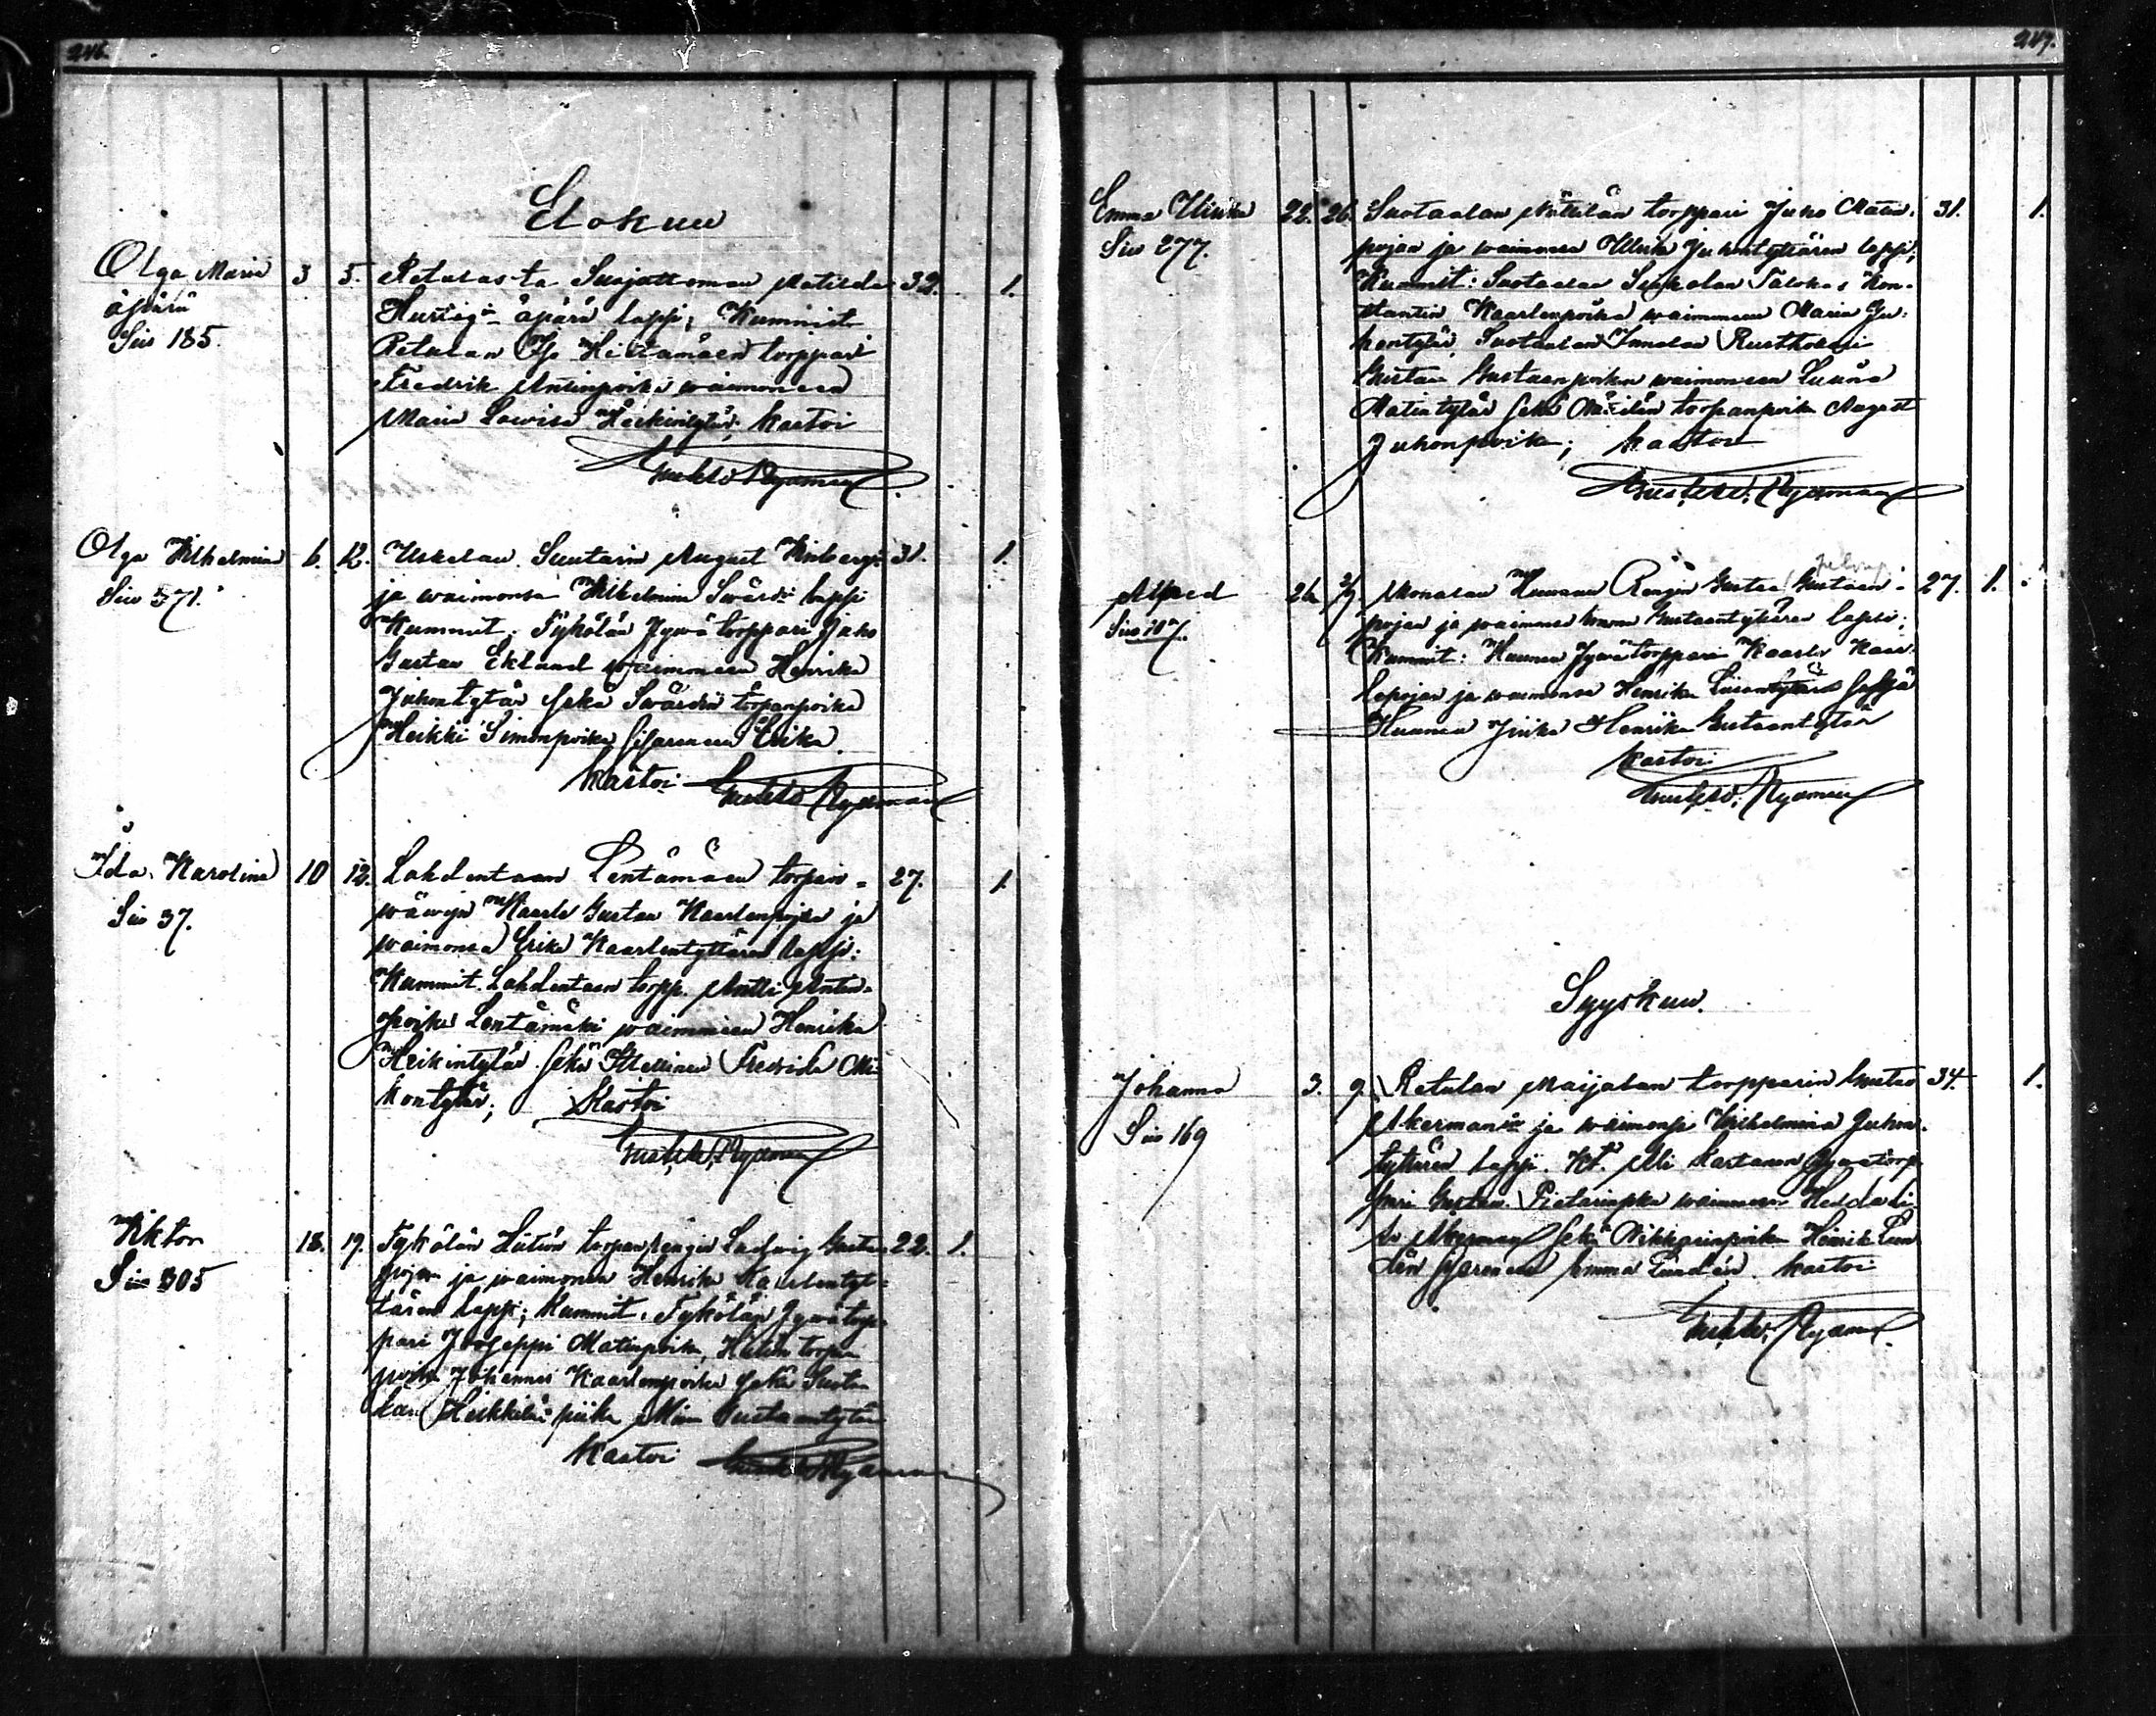 246.
Elokuu
Olga Maria 3 5. Retulasta Suojattoman Matilda 32. 1.
äpärä Hurtig'in äpärä lapsi; Kummit
Siv 185. Retulan Iso Hiittamäen torppari
Fredrik Antinpoika waimoneen
Maria Lowisa Heikintytär; Kastoi
Nyman
Olga Wilhelmina 6. 12. Uskelan Suutarin August Winberg 31. 1.
Siv 571. ja waimonsa Wilhelmina Swärd lapsi
Kummit: Tykölän Jywätorppari Juho
Gustav Eklund waimoneen Henrika
Juhontytär sekä Swärdin torpanpoika
Heikki Simonpoika sisarensa Erika.
Kastoi Nyman
Ida Karolina 10 12. Lahdentaan Lentämäen torpan- 27. 1.
Siv 37. wäwyn Kaarle Gustav Kaarlenpojan ja
waimonsa Erika Kaarlentyttären lapsi:
Kummit. Lahdentaan torpp. Antti Antin-
poika Lentämäki waimoneen Henrika
Heikintytär sekä Itsellinen Fredrika Mi-
kontytär; Kastoi
Nyman
Viktor 18. 19. Tykölän torpan rengin Ladvig Gusta 22. 1.
Siv 305 pojan ja waimonsa Henrika Kaarlentyt-
tären lapsi; Kummit. Tykölän Jywätorp-
pari Jooseppi Matinpoika, torpan
poika Johannes Kaarlenpoika sekä
Heikkilän piika Miina Gustaantytär
Kastoi Nyman
247.
Emma Ulrika 22. 26. Suotaalan Mattilan torppari Juho Matin- 31. 1.
Siv 277. pojan ja waimonsa Ulrika Juhontyttären lapsi;
Kummit: Suotaalan Seppolan Talokas Kon-
stantin Kaarlenpoika waimoneen Maria Ju-
hontytär, Suotaalan Rusthollari
Gustav Gustaanpoika waimoneen Leena
Matintytär sekä Mattilan torpanpoika August
Juhonpoika; Kastoi
Nyman
Alfred 26 2/9. Monaalan Hunnan Rengin Gustav Gustaan- 27. 1.
pojan ja waimonsa Gustaantyttären lapsi;
Kummit: Hunnan Jywätorppari Kaarle Kaar-
lepojan ja waimonsa Henrika
Hunnan piika Henrika Gustaantytär
Kastoi
Nyman
Syyskuu.
Johanna 3. 9. Retulan Maijalan torpparin Gustav 34. 1.
Siv 169 Akerman'in ja waimonsa Wilhelmina Juhon-
tyttären lapsi. Kt. Ali Kartanon Jywätorp-
pari Gustav Pietarinpka waimoneen Hedda
Akerman sekä Henrik Lun
dén sisarensa Emma Lundén. Kastoi
Nyman